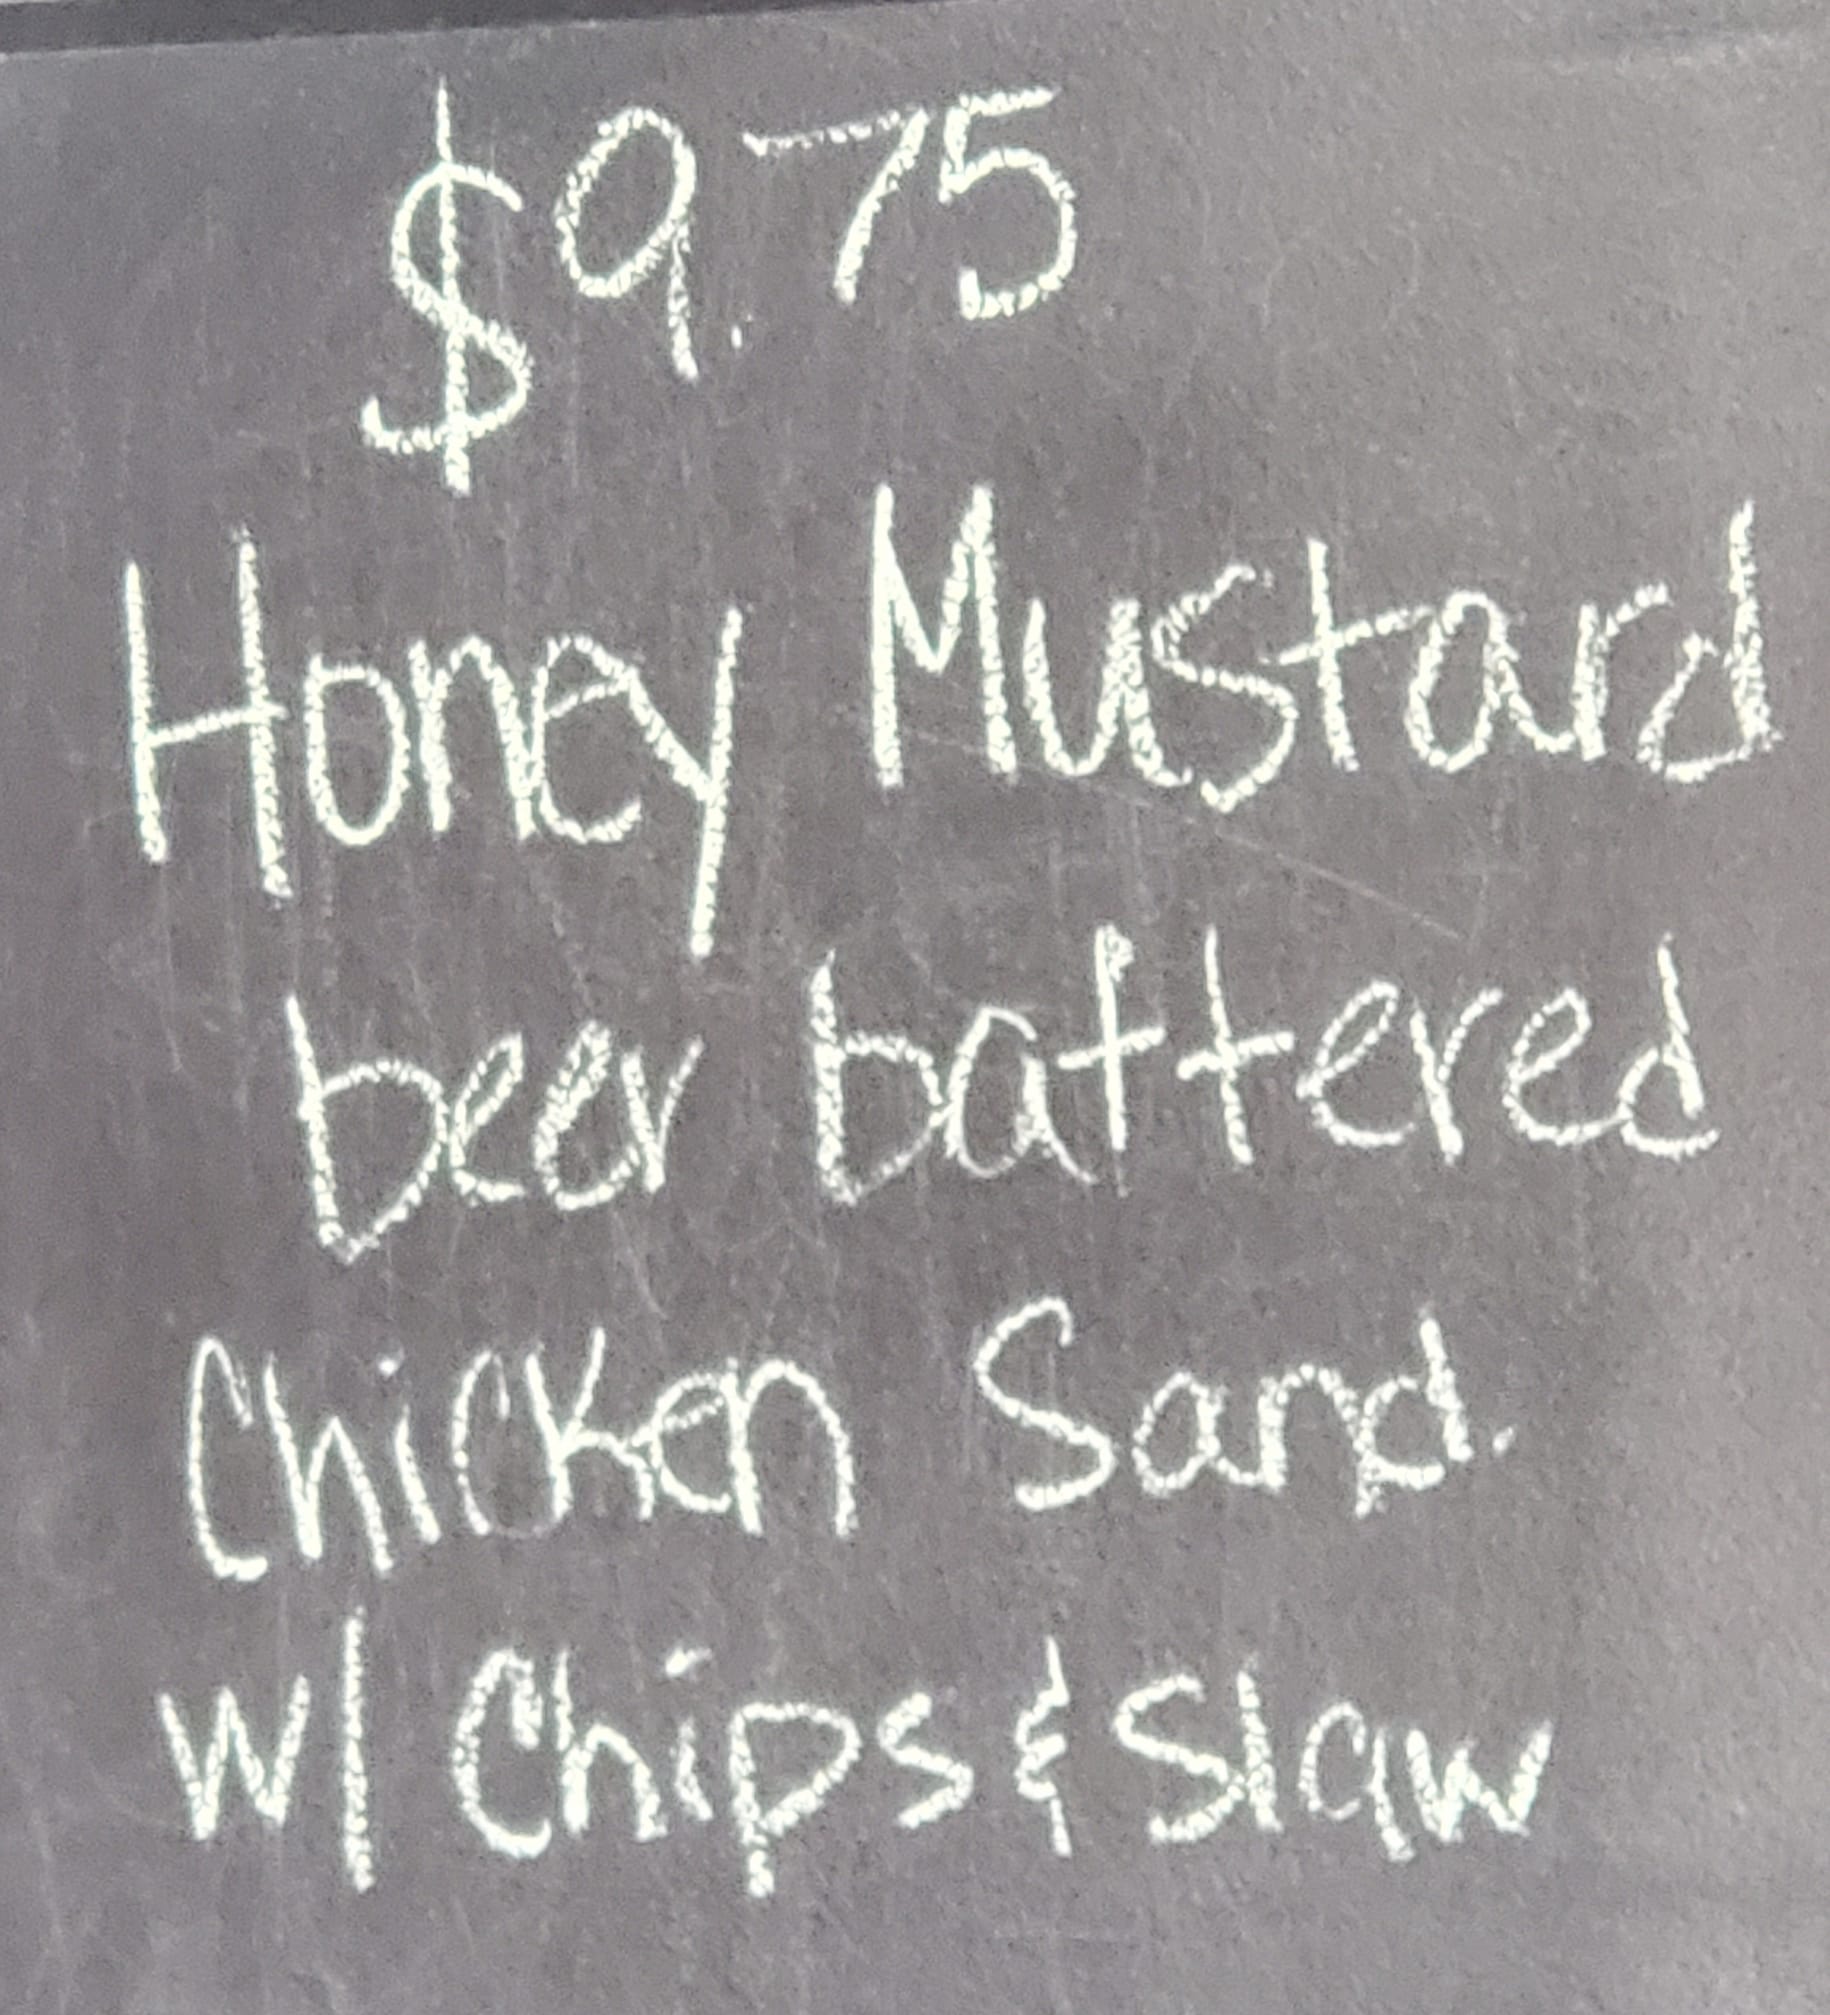 $9.75
Honey Mustard
beer battered
Chicken Sand.
w/ Chips & Slaw